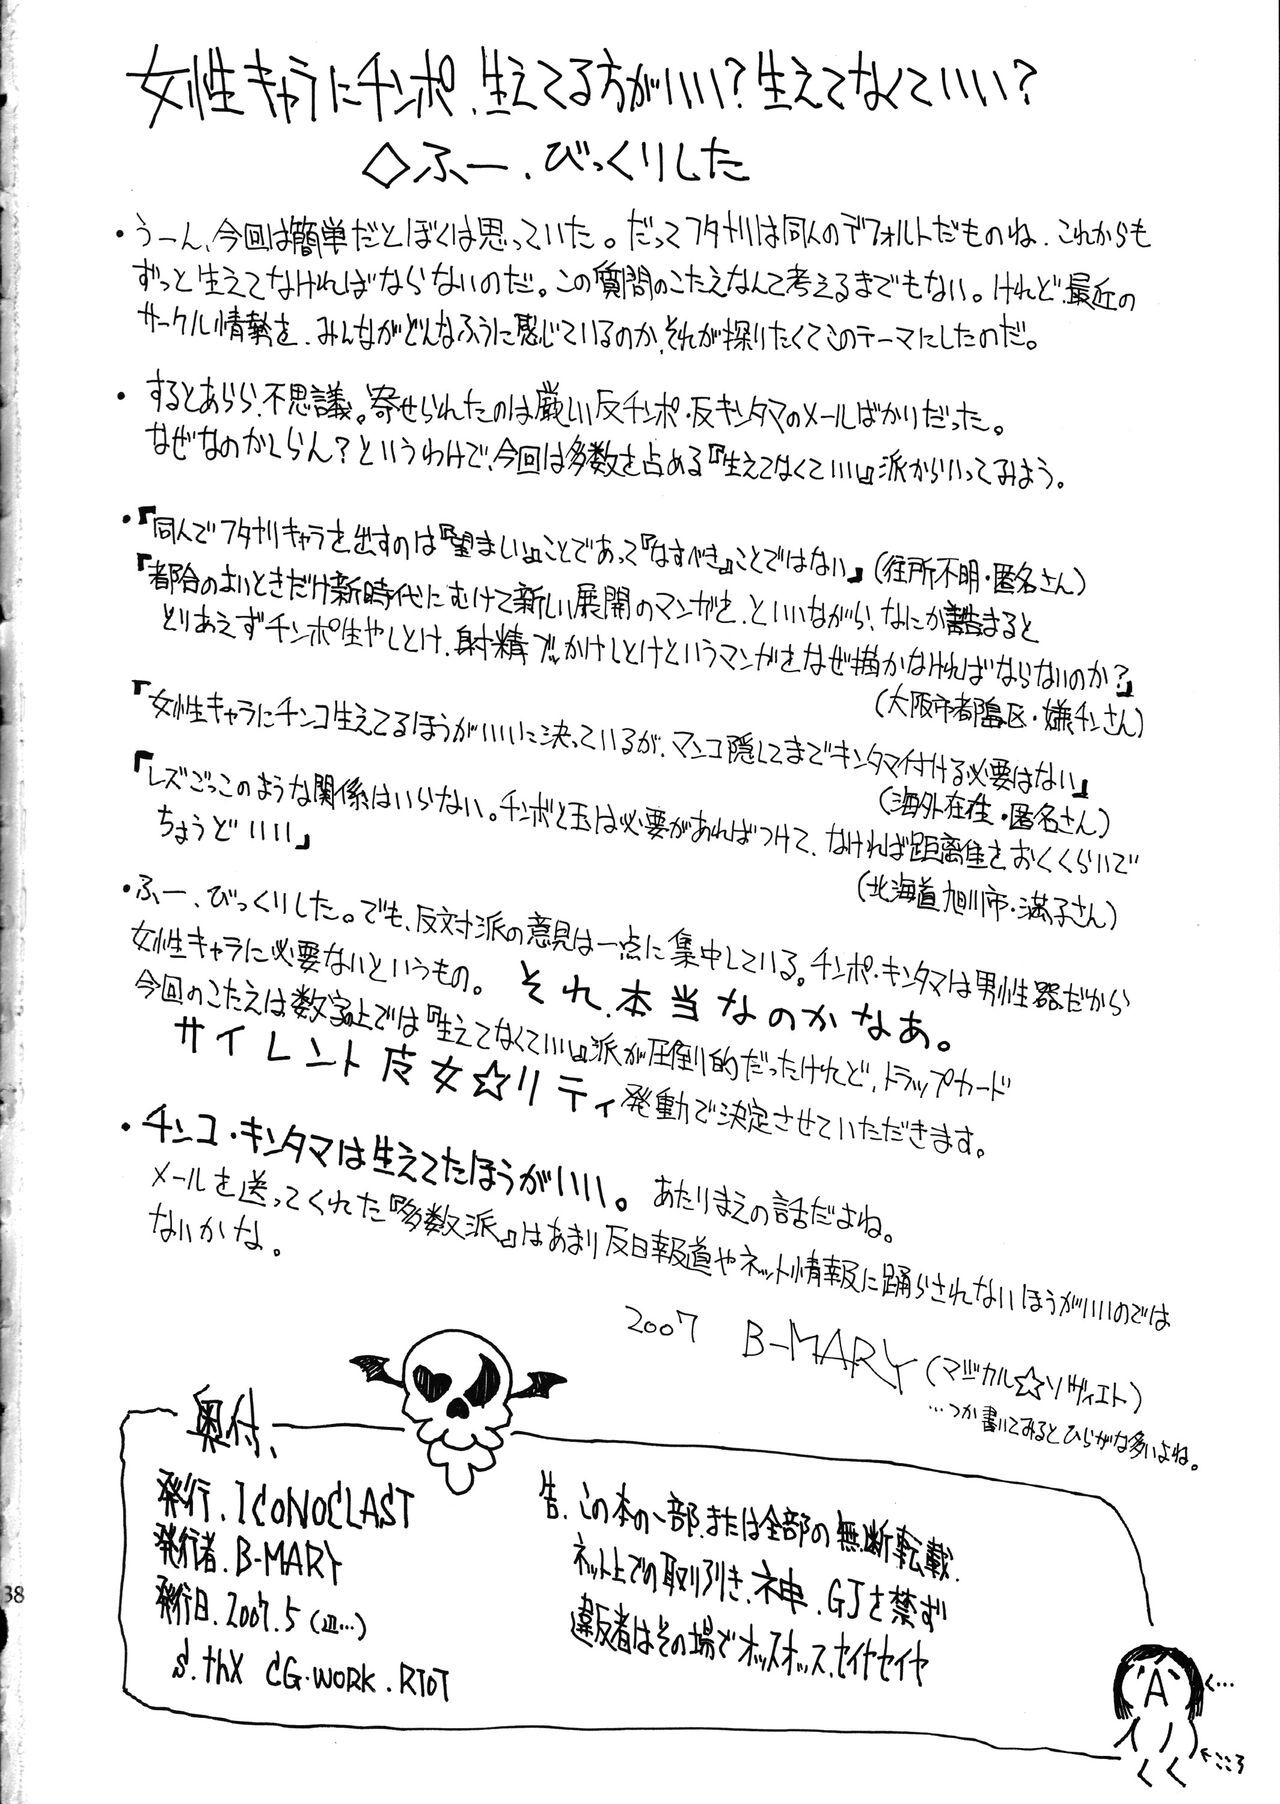 女性キャラにチンポ、生えてる方がいい?生えてなくていい?
◇ふー、びっくりした
・うーん、今回は簡単だとぼくは思っていた。だってフタナリは同人のデフォルトだものね、これからも
ずっと生えてなければならないのだ。この質問のこたえなんて考えるまでもない。けれど、最近の
サークル情勢を、みんながどんなふうに感じているのか、それが探りたくてこのテーマにしたのだ。
・するとあらら、不思議。寄せられたのは厳しい反チンポ・反キンタマのメールばかりだった。
なぜなのかしらん?というわけで、今回は多数を占める『生えてなくていい』派からいってみよう。
・『同人でフタナリキャラを出すのは『望ましい』ことであって『なすべき』ことではない』(住所不明・匿名さん)
『都合のよいときだけ新時代にむけて新しい展開のマンガを、といいながら、なにか詰まると
とりあえずチンポ生やしとけ、射精ブッかけしとけというマンガをなぜ描かなければならないのか?』
(大阪市都島区・嫌チンさん)
『女性キャラにチンコ生えてるほうがいいに決っているが、マンコ隠してまでキンタマ付ける必要はない』
(海外在住・匿名さん)
『レズごっこのような関係はいらない。チンポと玉は必要があればつけて、なければ距離をおくくらいで
ちょうどいい』
(北海道旭川市・満子さん)
・ふー、びっくりした。でも、反対派の意見は一点に集中している。チンポ・キンタマは男性器だから
女性キャラに必要ないというもの。それ、本当なのかなあ。
今回のこたえは数字上では『生えてなくていい』派が圧倒的だったけれど、トラップカード
サイレント魔女☆リティ発動で決定させていただきます。
・チンコ・キンタマは生えてたほうがいい。あたりまえの話だよね。
メールを送ってくれた『多数派』はあまり反日報道やネット情報に踊らされないほうがいいのでは
ないかな。
2007 B-MARY(マジカル☆ソヴィエト)
…つか書いてみるとひらがな多いよね。
奥付、
発行、ICONOCLAST
発行者、B-MARY
発行日、2007.5(皿…)
S.thX CG.WORK.RIOT
告、この本の一部、または全部の無断転載、
ネット上での取り引き、神、GJを禁ず
違反者はその場でオッスオッス、セイヤセイヤ
A
く…
←こころ
38